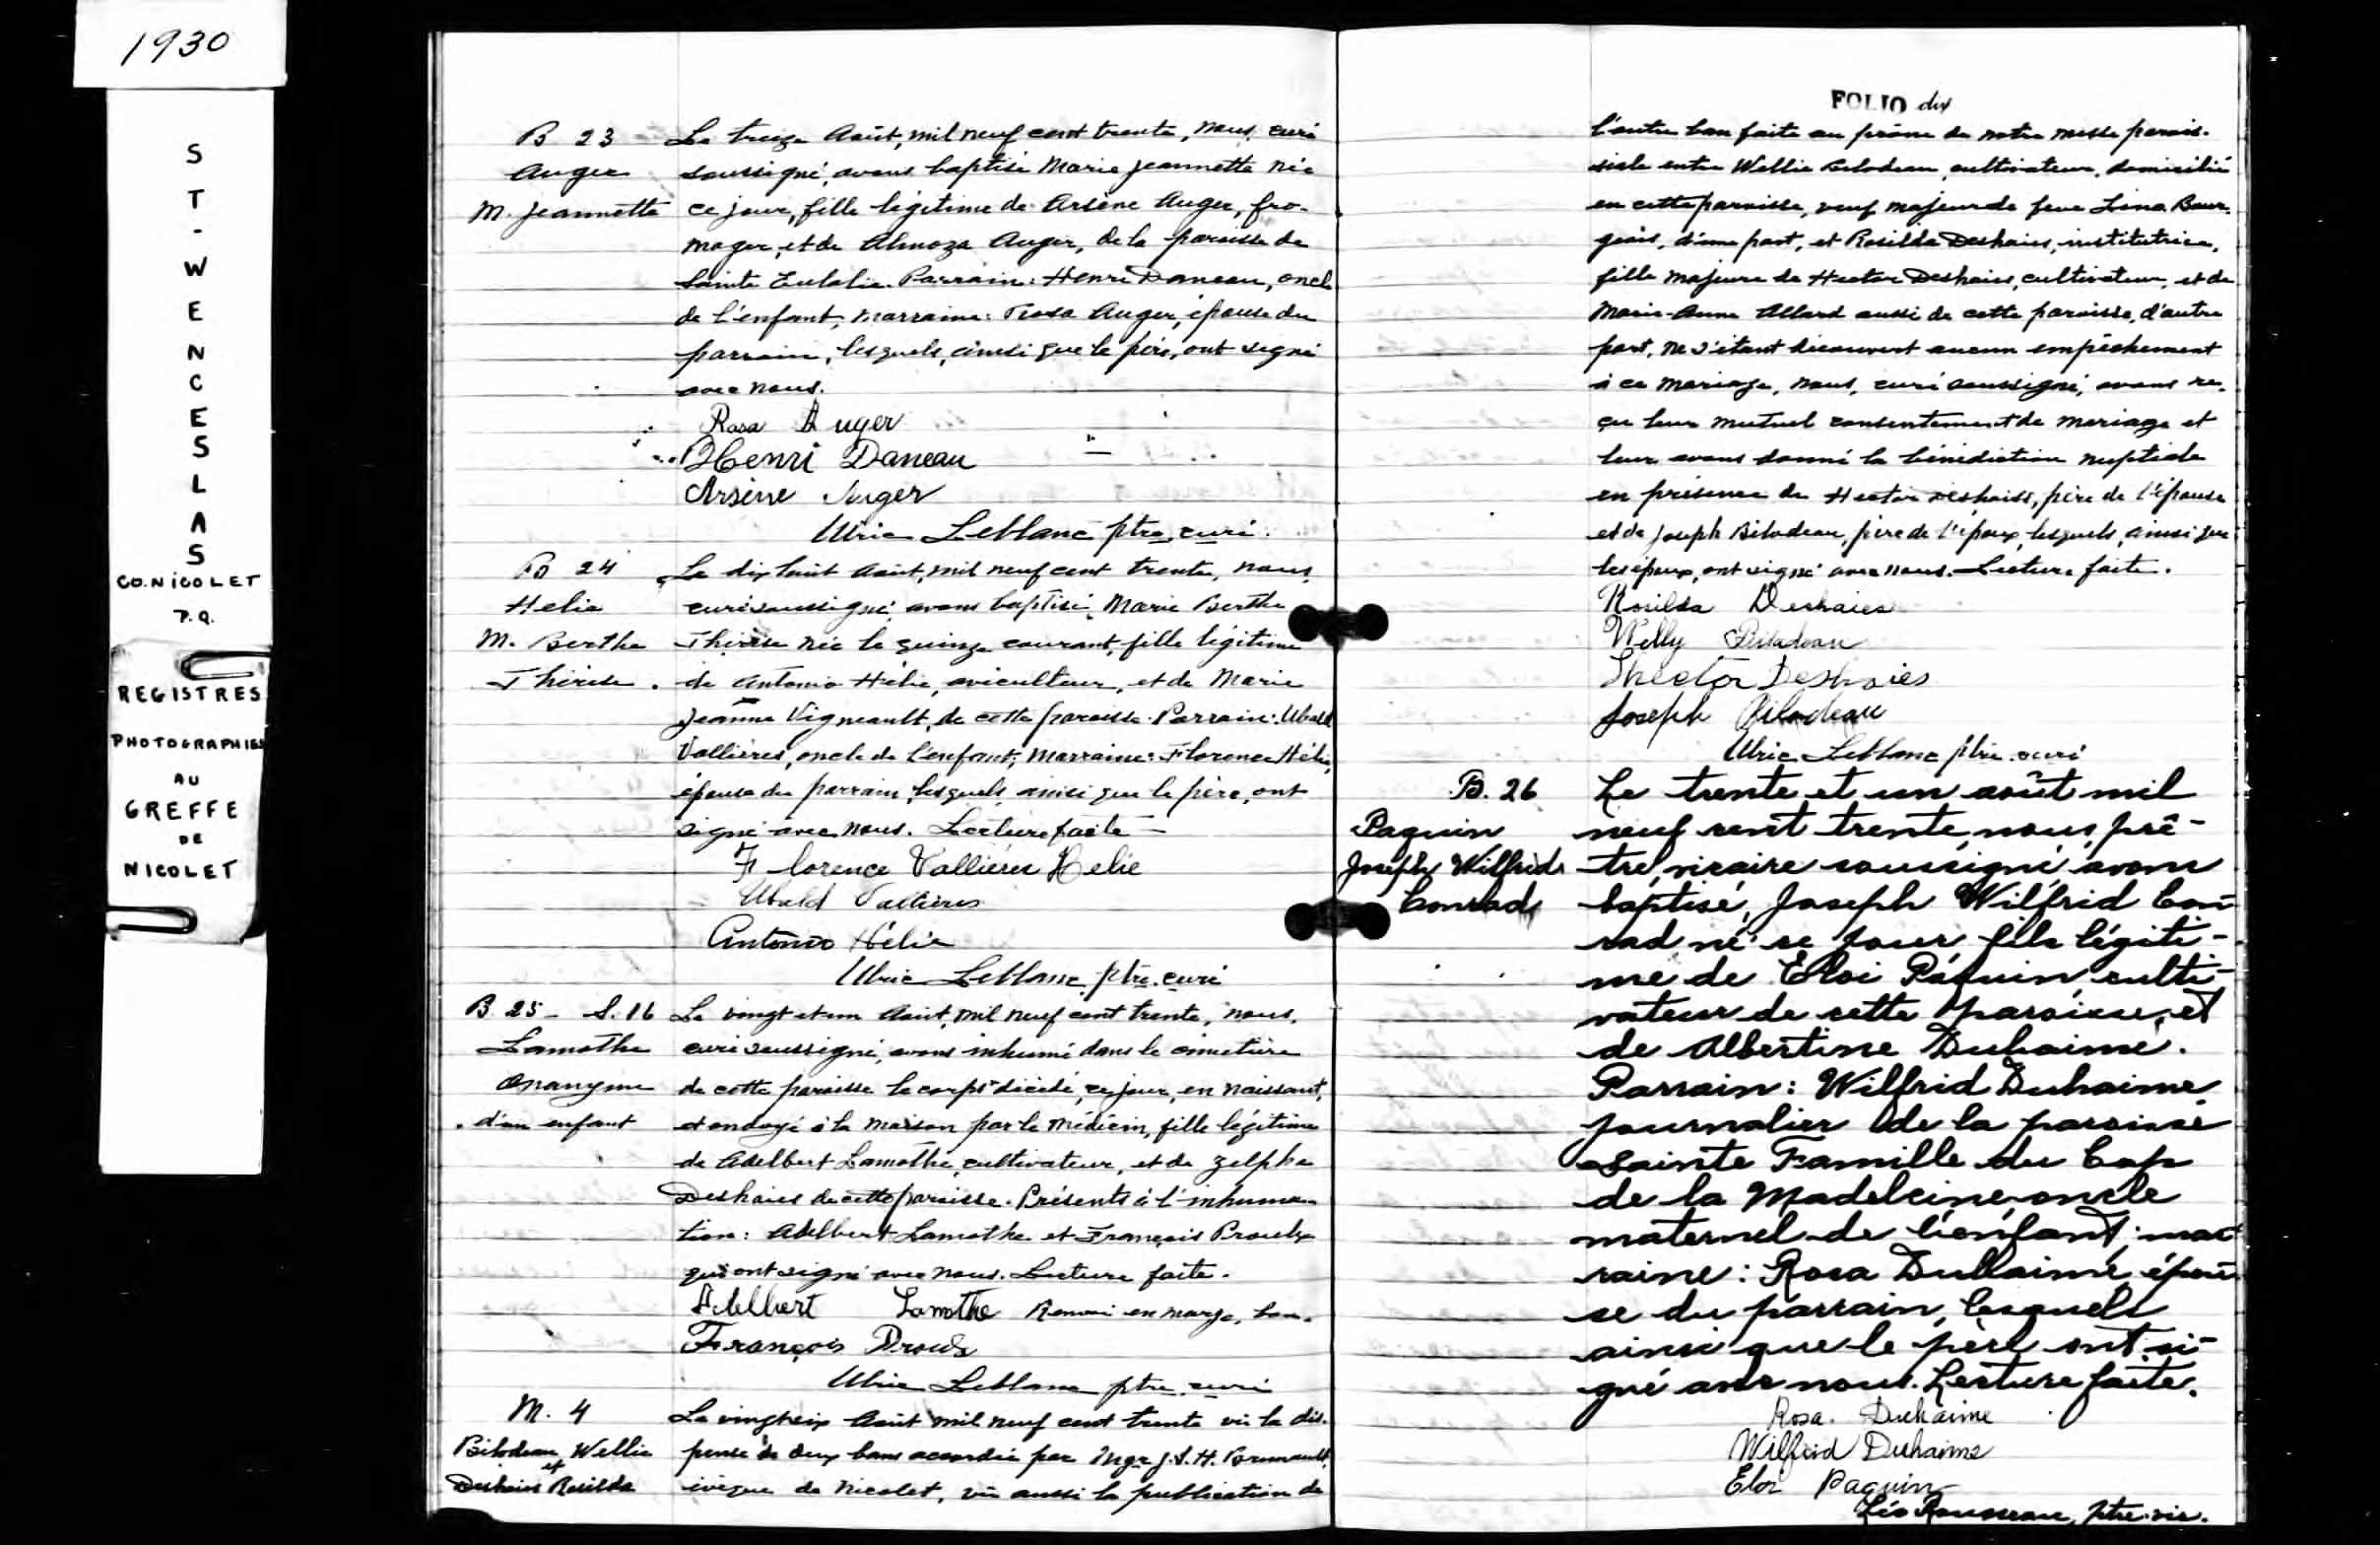 1930
S
T
-
W
E
N
C
E
S
L
A
S
CO. NICOLET
P.Q.
REGISTRES
PHOTOGRAPHIES
AU
GREFFE
DE
NICOLET
B 23
Auger
M. Jeannette
Le treize Août, mil neuf cent trente, nous, curé
soussigné, avons baptisé Marie Jeannette née
ce jour, fille légitime de Arsène Auger, fro-
mager, et de Almoza Auger, de la paroisse de
Sainte Eulalie. Parrain: Henri Daneau, oncle
de l'enfant, marraine: Rosa Auger, épouse du
parrain, lesquels, ainsi que le père, ont signé
avec nous.
Rosa Auger
Henri Daneau
Arsène Auger
Ulric Leblanc ptre, curé.
B 24
Helie
M. Berthe
Thérèse.
Le dix huit Août, mil neuf cent trente, nous,
curé soussigné, avons baptisé, Marie Berthe
Thérèse née le quinze courant, fille légitime
de Antonio Hélie, aviculteur, et de Marie
Jeanne Vigneault, de cette paroisse. Parrain: Ubald
Vallières, oncle de l'enfant; Marraine: Florence Hélie,
épouse du parrain, lesquels, ainsi que le père, ont
signé avec nous. Lecture faite -
Florence Vallières Helie
Ubald Vallières
Antonio Hélie
Ulric Leblanc, ptre. curé
B 25 - S. 16
Lamothe
Anonyme
d'un enfant
Le vingt et un Août, mil neuf cent trente, nous,
curé soussigné, avons inhumé dans le cimetière
de cette paroisse le corps décédé, ce jour, en naissant,
et ondoyé à la maison par le médecin, fille légitime
de Adelbert Lamothe, cultivateur, et de Zelpha
Deshaies de cette paroisse. Présents à l'inhuma-
tion: Adelbert Lamothe et François Proulx
qui ont signé avec nous. Lecture faite.
Adelbert Lamothe Renvoi en marge, bon.
François Proulx
Ulric Leblanc ptre, curé
M. 4
Bilodeau, Wellie
et
Deshaies Rosilda
Le vingt six Août mil neuf cent trente vu la dis-
pense de deux bans accordée par Mgr J.S.H. Brunault,
évêque de Nicolet, vu aussi la publication de
FOLIO dix
l'autre ban faite au prône de notre messe parois-
siale entre Wellie Bilodeau, cultivateur, domicilié
en cette paroisse, veuf majeur de feue Lina Bour-
geois, d'une part, et Rosilda Deshaies, institutrice,
fille majeure de Hector Deshaies, cultivateur, et de
Marie-Anne Allard aussi de cette paroisse, d'autre
part, ne s'étant découvert aucun empêchement
à ce mariage, nous, curé soussigné, avons re-
çu leur mutuel consentement de mariage et
leur avons donné la bénédiction nuptiale
en présence de Hector Deshaies, père de l'épouse
et de Joseph Bilodeau, père de l'époux, lesquels, ainsi que
les époux, ont signé avec nous. Lecture faite.
Rosilda Deshaies
Welly Bilodeau
Hector Deshaies
Joseph Bilodeau
Ulric Leblanc ptre. curé
B. 26
Paquin
Joseph Wilfrid
Conrad
Le trente et un août mil
neuf cent trente, nous, prê-
tre, vicaire soussigné, avons
baptisé, Joseph Wilfrid Con-
rad né ce jour fils légiti-
me de Eloi Paquin, culti-
vateur de cette paroisse, et
de Albertine Duhaime.
Parrain: Wilfrid Duhaime,
journalier de la paroisse
Sainte Famille du Cap
de la Madeleine, oncle
maternel de l'enfant; mar-
raine: Rosa Duhaime, épou-
se du parrain, lesquels
ainsi que le père ont si-
gné avec nous. Lecture faite.
Rosa. Duhaime
Wilfrid Duhaime
Eloi Paquin
Léo Rousseau, ptre. vic.